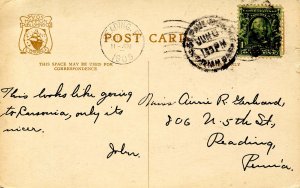 POST CARD
THIS SPACE MAY BE USED FOR
CORRESPONDENCE
1909
JUN
This looks like going
to Parsonia, only its
nicer.
John.
Miss Annie R. Gerhard,
206 N. 5th St,
Reading,
Penn'a.